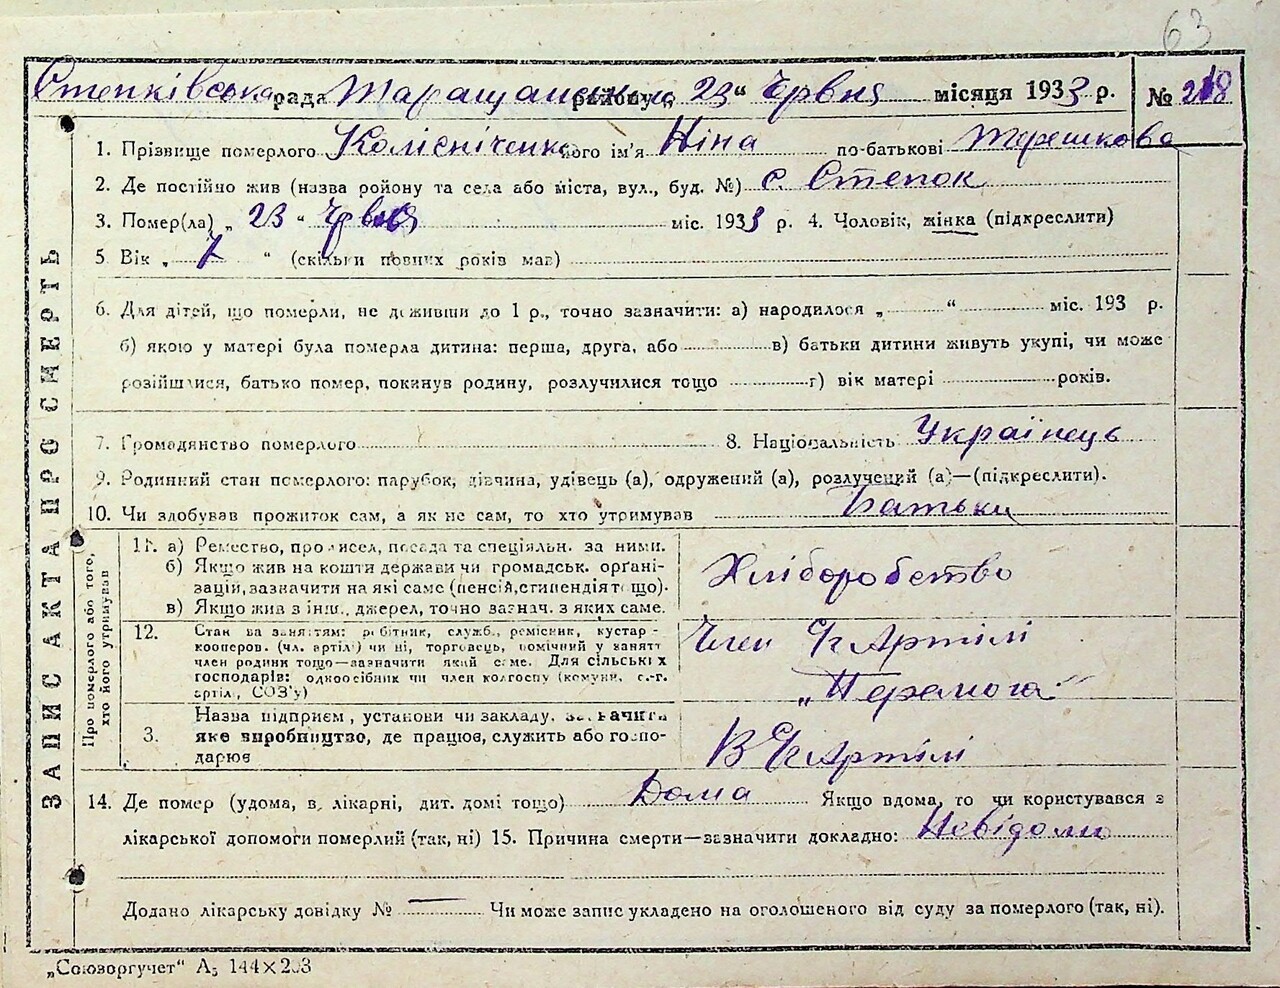 63
Степківська рада Таращанськ району „ 23 “ Червня місяця 1933 р. № 218
1. Прізвище померлого Колісніченко ого ім'я Ніна по-батькові Терешкова
2. Де постійно жив (назва ройону та села або міста, вул., буд. №) с. Степок
3. Помер(ла) „ 23 “ Червня міс. 1933 р. 4. Чоловік, жінка (підкреслити)
5. Вік „ 7 “ (скільки повних років мав)
6. Для дітей, що померли, не доживши до 1 р., точно зазначити: а) народилося „ “ міс. 193 р.
б) якою у матері була померла дитина: перша, друга, або в) батьки дитини живуть укупі, чи може
розійшлися, батько помер, покинув родину, розлучилися тощо г) вік матері років.
7. Громадянство померлого 8. Національність Українець
9. Родинний стан померлого: парубок, дівчина, удівець (а), одружений (а), розлучений (а)—(підкреслити).
10. Чи здобував прожиток сам, а як не сам, то хто утримував Батьки
11. а) Ремество, промисел, посада та спеціяльн. за ними.
б) Якщо жив на кошти держави чи громадськ. орґані-
зацій, зазначити на які саме (пенсій, стипендія тощо).
в) Якщо жив з інш. джерел, точно зазнач. з яких саме.
Хліборобство
12. Стан за заняттям: робітник, служб., ремісник, кустар -
кооперов. (чл. артіл) чи ні, торговець, помічний у занятт
член родини тощо—зазначити який саме. Для сільськіх
господарів: одноосібник чи член колгоспу (комуни, с.-г.
артіл, СОЗ'у)
Член С/г Артілі
„Перемога“
3. Назва підприєм, установи чи закладу, зазначити
яке виробництво, де працює, служить або госпо-
дарює
В С/г Артілі
14. Де помер (удома, в лікарні, дит. домі тощо) Дома Якщо вдома, то чи користувався з
лікарської допомоги померлий (так, ні) 15. Причина смерти—зазначити докладно: Невідомо
Додано лікарську довідку № — Чи може запис укладено на оголошеного від суду за померлого (так, ні).
„Союзоргучет“ А5 144×203
ЗАПИС АКТА ПРО СМЕРТЬ
Про померлого або того,
хто його утримував